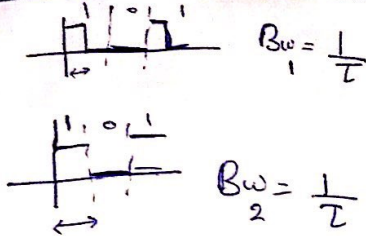 1 0 1
Bw₁ = 1/τ
1 0 1
Bw₂ = 1/τ